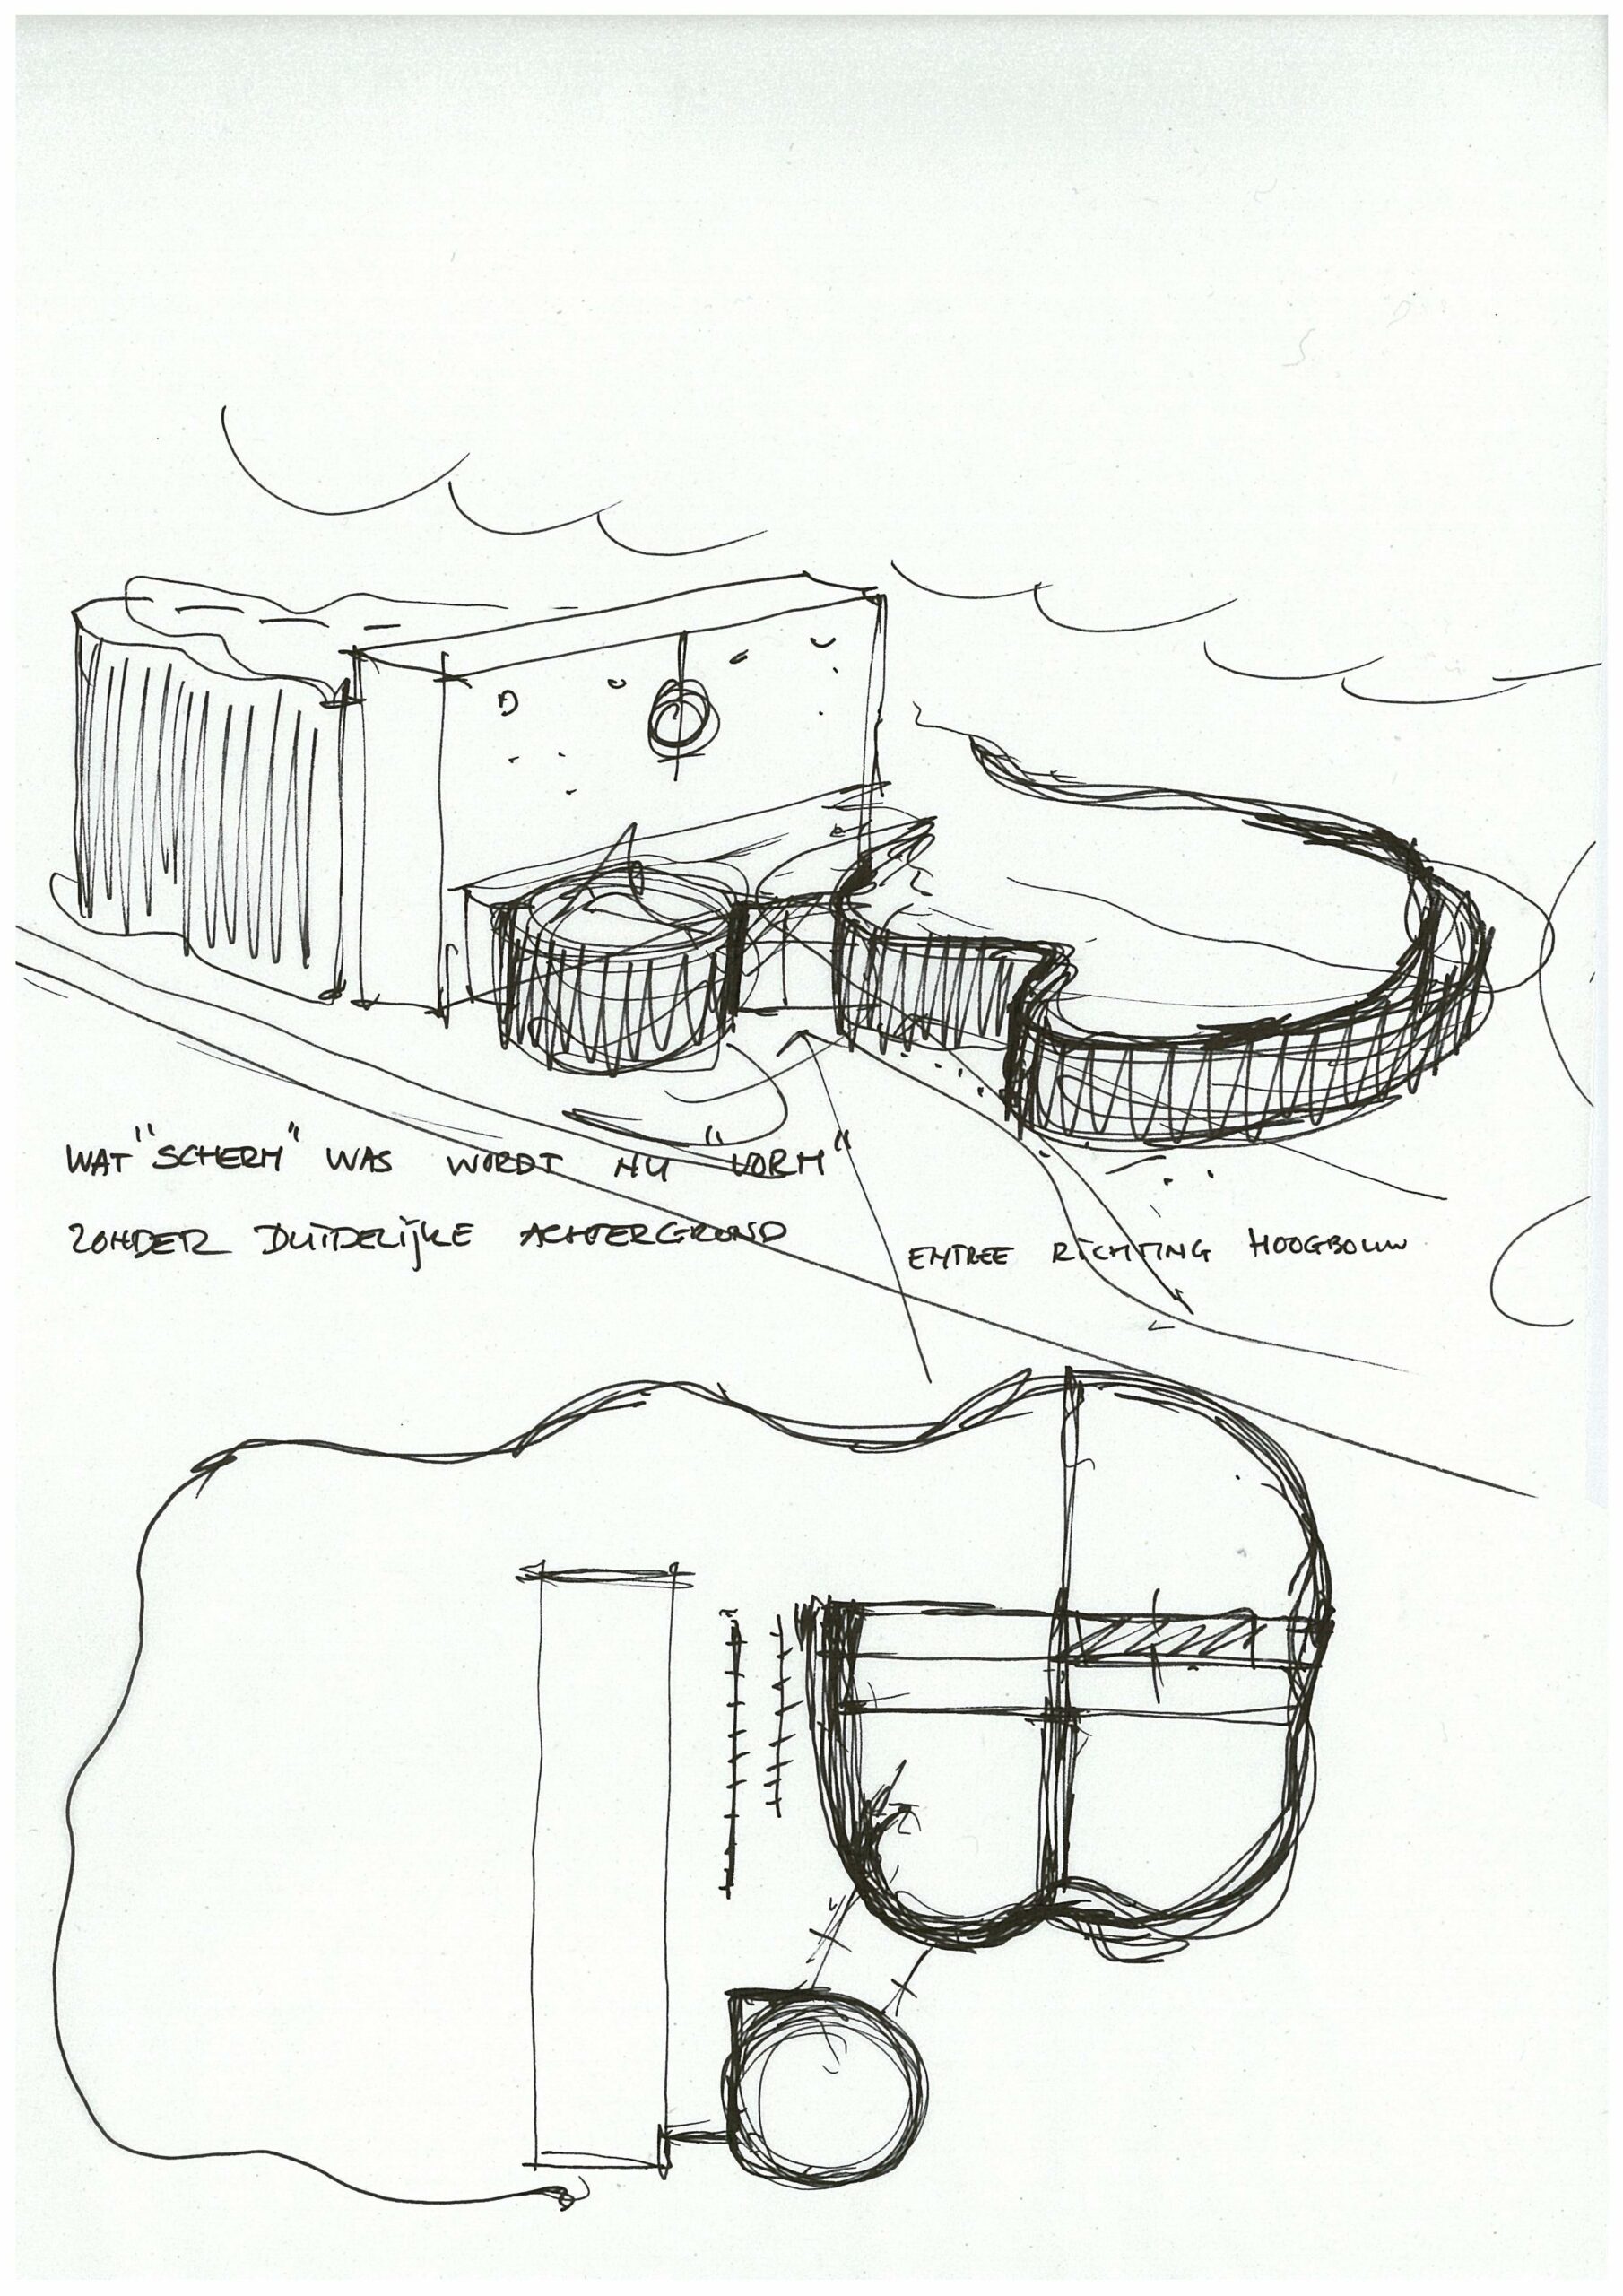 WAT "SCHERM" WAS WORDT NU "VORM"
ZONDER DUIDELIJKE ACHTERGROND
ENTREE RICHTING HOOGBOUW